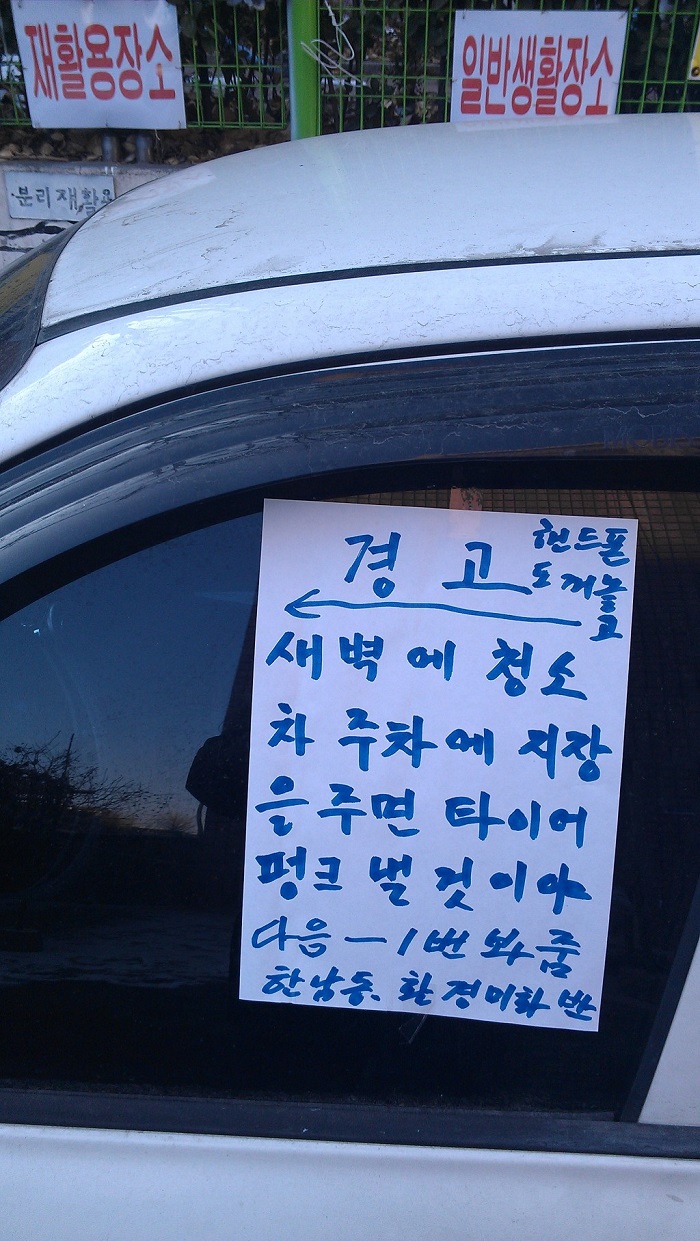 재활용장소
일반생활장소
분리재활용
경고
핸드폰
도꺼놓
고
새벽에 청소
차 주차에 지장
을 주면 타이어
펑크 낼 것이야
다음-1번 봐줌
한남동. 환경미화반